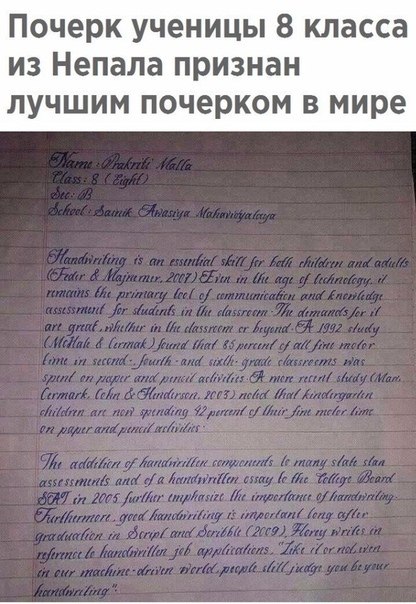 Почерк ученицы 8 класса
из Непала признан
лучшим почерком в мире
Name : Prakriti Malla
Class : 8 ( Eight )
Sec : B
School : Sainik Awasiya Mahavidyalaya
Handwriting is an essential skill for both children and adults
(Feder & Majnemer, 2007) Even in the age of technology, it
remains the primary tool of communication and knowledge
assessment for students in the classroom. The demands for it
are great, whether in the classroom or beyond. A 1992 study
(McHale & Cermak) found that 85 percent of all fine motor
time in second-, fourth- and sixth- grade classrooms was
spent on paper and pencil activities. A more recent study (Marr,
Cermark, Cohn & Henderson, 2003) noted that kindergarten
children are now spending 42 percent of their fine motor time
on paper and pencil activities.
The addition of handwritten components to many state stan
assessments and of a handwritten essay to the College Board
SAT in 2005 further emphasize the importance of handwriting.
Furthermore, good handwriting is important long after
graduation in Script and Scribble (2009), Florey writes in
reference to handwritten job applications, "Like it or not, even
in our machine-driven world, people still judge you be your
handwriting".